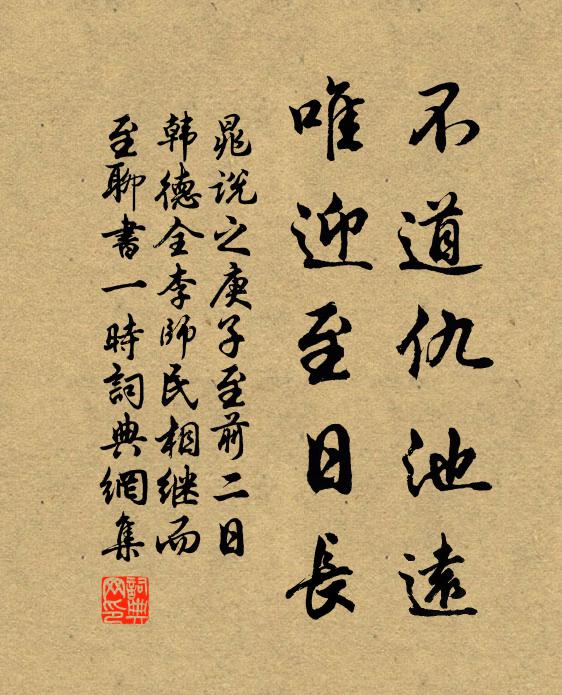 不道仇池遠
唯迎至日長
晁説之庚子至前二日
韓德全李師民相继而
至聊書一時詞典網集
詞典网印